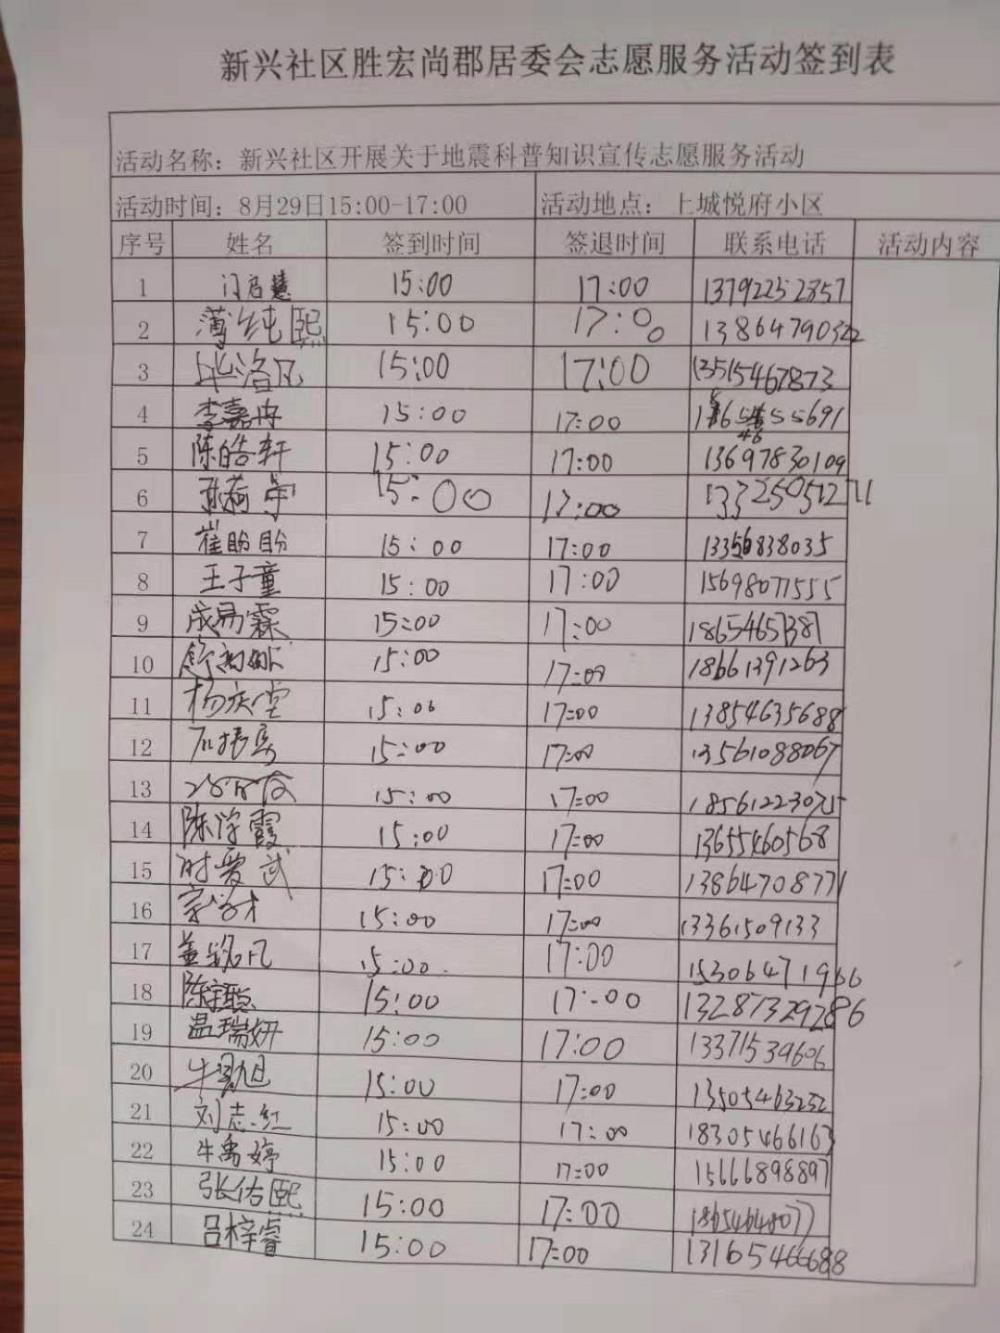 新兴社区胜宏尚郡居委会志愿服务活动签到表
活动名称：新兴社区开展关于地震科普知识宣传志愿服务活动
活动时间：8月29日15:00-17:00 活动地点：上城悦府小区
序号 姓名 签到时间 签退时间 联系电话 活动内容
1 门启慧 15:00 17:00 13792252857
2 薄纯熙 15:00 17:00 13864790322
3 毕洛凡 15:00 17:00 13515467873
4 李嘉冉 15:00 17:00
5 陈皓轩 15:00 17:00 13697830109
6 15:00 17:00 13325051271
7 崔盼盼 15:00 17:00 13356838035
8 王子童 15:00 17:00 15698071555
9 成易霖 15:00 17:00 18654657387
10 15:00 17:00 18661391263
11 杨庆堂 15:00 17:00 13854635688
12 石振勇 15:00 17:00 13561088067
13 15:00 17:00 18561223075
14 陈学霞 15:00 17:00 13655460568
15 时爱武 15:00 17:00 13864708771
16 15:00 17:00 13361509133
17 盖铭凡 15:00 17:00 15306471966
18 陈聪 15:00 17:00 13287329286
19 温瑞妍 15:00 17:00 13371539606
20 牛旭 15:00 17:00 13505463232
21 刘志红 15:00 17:00 18305466163
22 牛禹婷 15:00 17:00 15666898897
23 张佑熙 15:00 17:00 18654648077
24 吕梓睿 15:00 17:00 13165466688